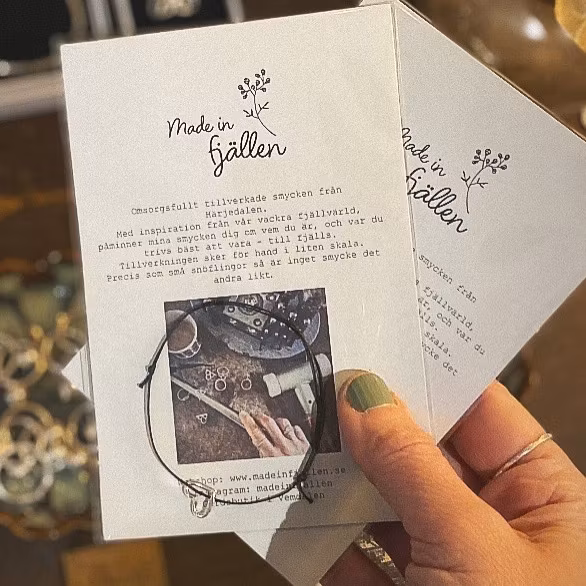 Made in
fjällen
Omsorgsfullt tillverkade smycken från
Härjedalen.
Med inspiration från vår vackra fjällvärld,
påminner mina smycken dig om vem du är, och var du
trivs bäst att vara - till fjälls.
Tillverkningen sker för hand i liten skala.
Precis som små snöflingor så är inget smycke det
andra likt.
www.madeinfjällen.se
madeinfjällen
i Vemdalen
Made in
fjällen
smycken från
fjällvärld,
är, och var du
fjälls.
skala.
smycke det